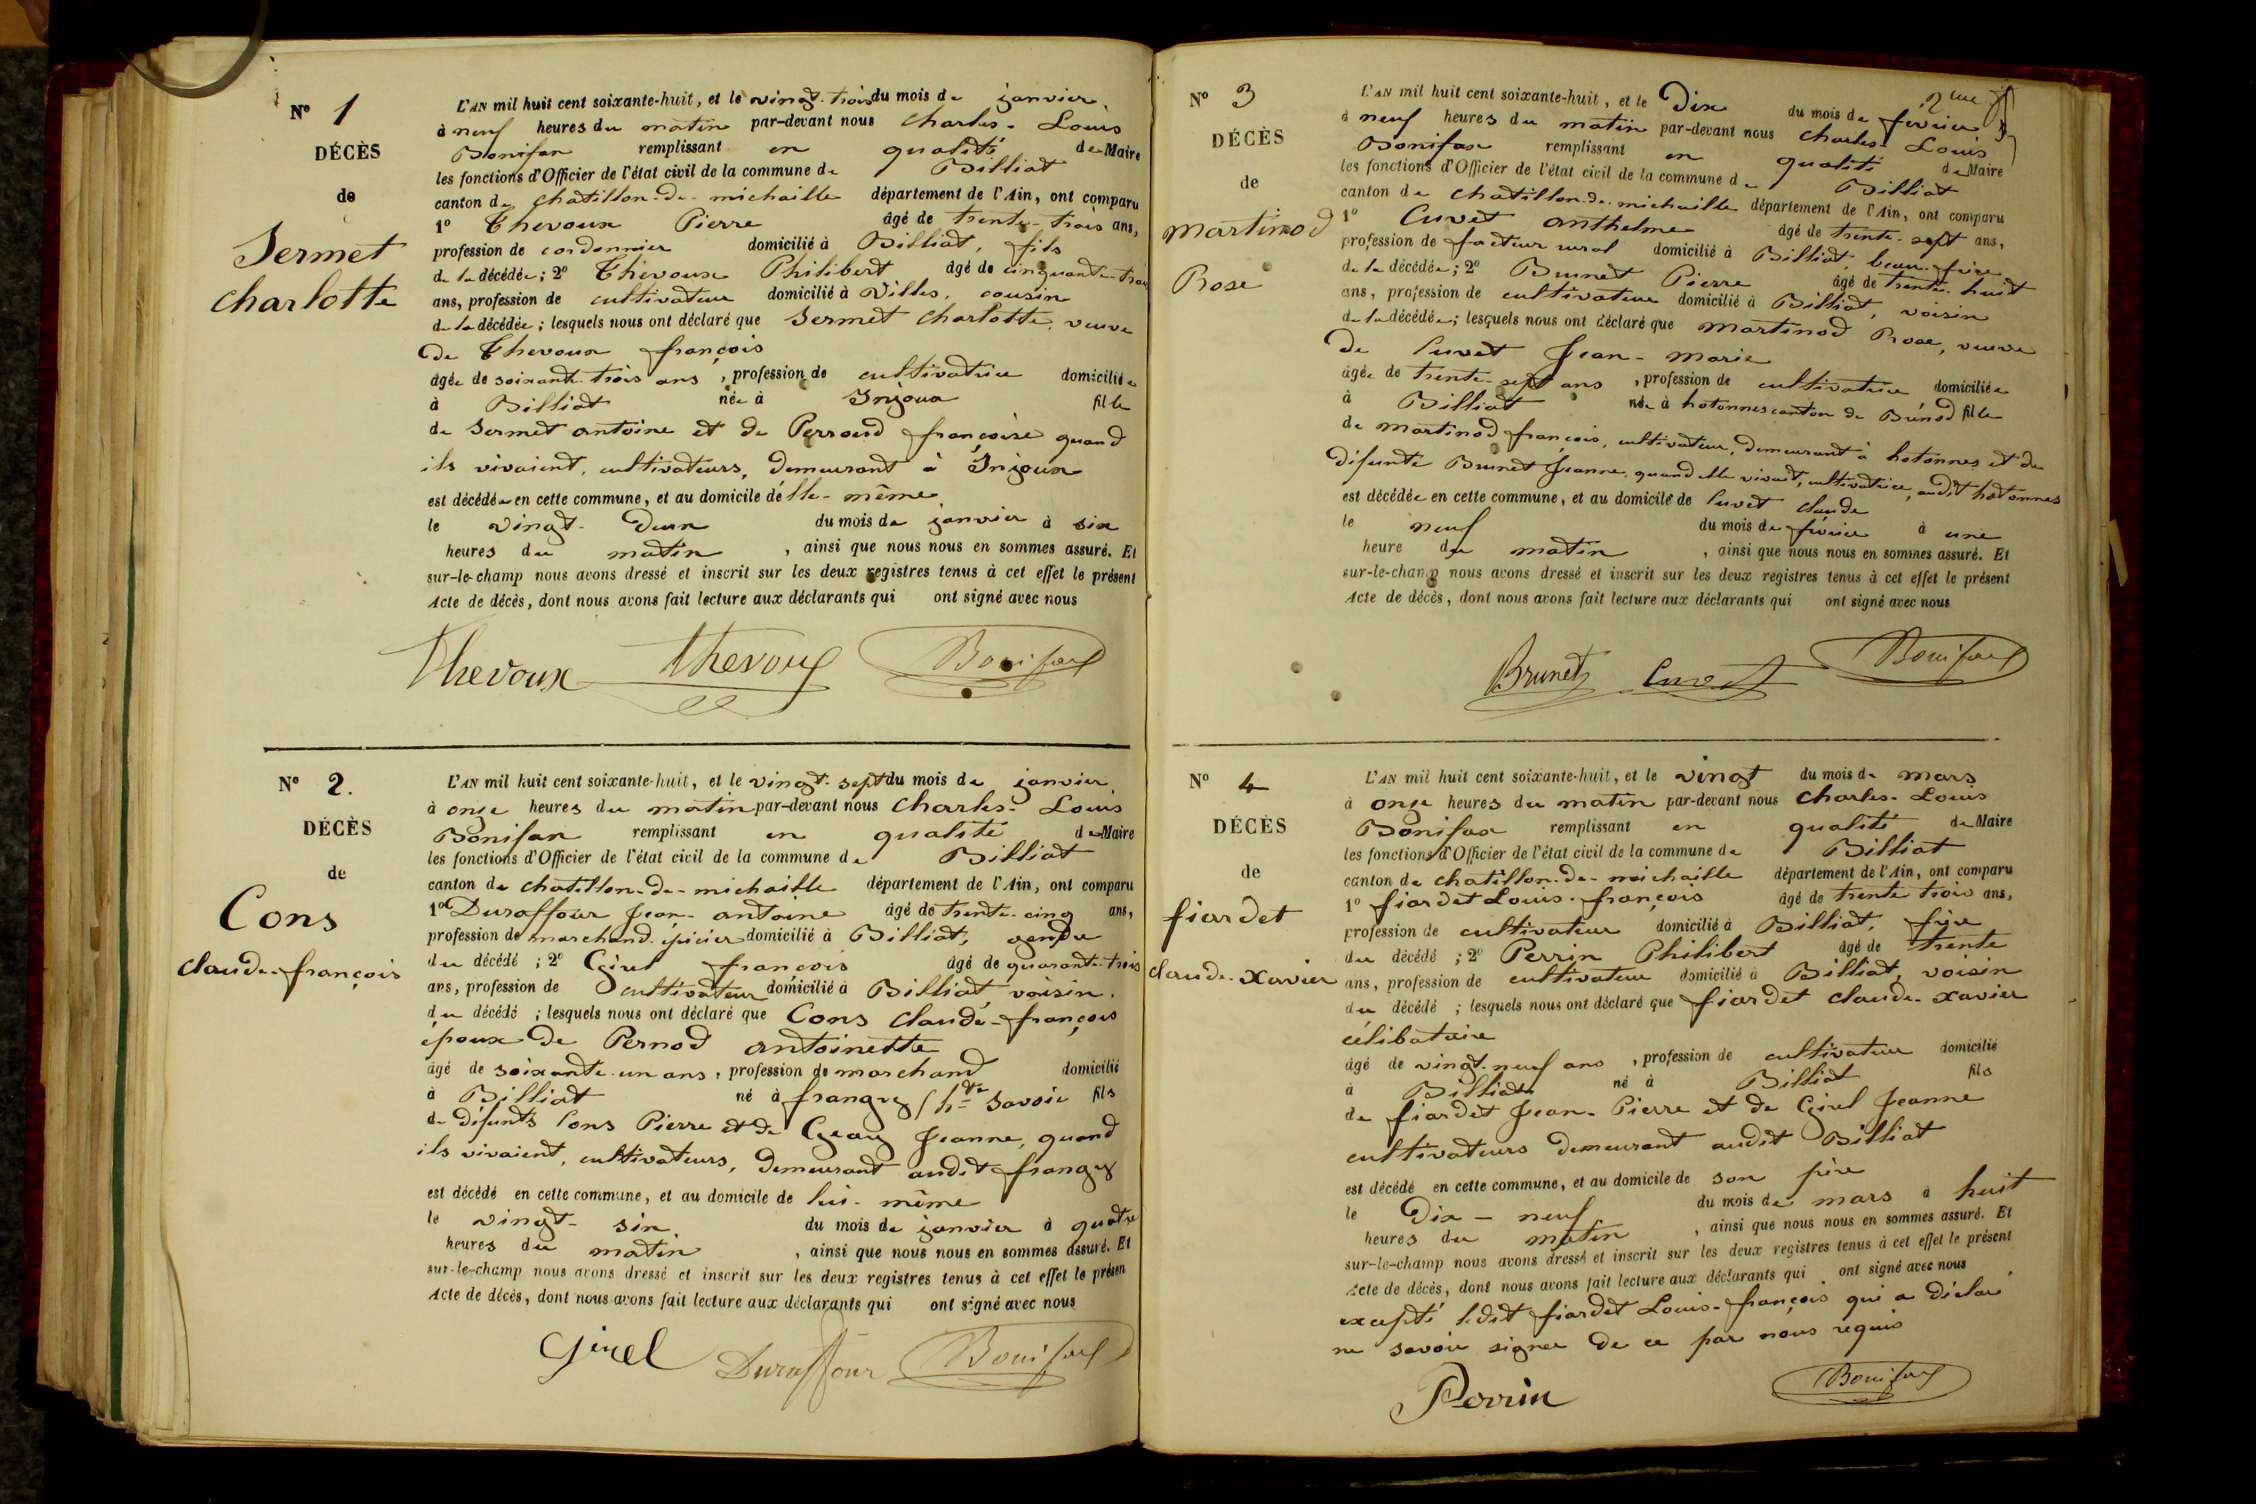 N° 1
DÉCÈS
de
Sermet
Charlotte
L'AN mil huit cent soixante-huit, et le vingt-trois du mois de janvier
à neuf heures du matin par-devant nous Charles-Louis
Bonifax remplissant en qualité de Maire
les fonctions d'Officier de l'état civil de la commune de Billiat
canton de Chatillon-de-michaille département de l'Ain, ont comparu
1° Thevoux Pierre âgé de trente-trois ans,
profession de cordonnier domicilié à Billiat, fils
de la décédée; 2° Thevoux Philibert âgé de cinquante-trois
ans, profession de cultivateur domicilié à Villes, cousin
de la décédée; lesquels nous ont déclaré que Sermet Charlotte, veuve
de Thevoux françois
âgée de soixante-trois ans, profession de cultivatrice domiciliée
à Billiat née à Injoux fille
de Sermet antoine et de Perroud françoise quand
ils vivaient, cultivateurs, demeurant à Injoux
est décédée en cette commune, et au domicile d'elle-même
le vingt-deux du mois de janvier à six
heures du matin, ainsi que nous nous en sommes assuré. Et
sur-le-champ nous avons dressé et inscrit sur les deux registres tenus à cet effet le présent
Acte de décès, dont nous avons fait lecture aux déclarants qui ont signé avec nous
Thevoux Thevoux Bonifax
N° 2.
DÉCÈS
de
Cons
claude-françois
L'AN mil huit cent soixante-huit, et le vingt-sept du mois de janvier
à onze heures du matin par-devant nous Charles-Louis
Bonifax remplissant en qualité de Maire
les fonctions d'Officier de l'état civil de la commune de Billiat
canton de chatillon-de-michaille département de l'Ain, ont comparu
1° Duraffour Jean-antoine âgé de trente-cinq ans,
profession de marchand-épicier domicilié à Billiat, gendre
du décédé; 2° Girel françois âgé de quarante-trois
ans, profession de cultivateur domicilié à Billiat, voisin.
du décédé; lesquels nous ont déclaré que Cons Claude-françois
époux de Pernod antoinette
âgé de soixante-un ans, profession de marchand domicilié
à Billiat né à frangy (hte Savoie fils
de défunts Cons Pierre et de Geay Jeanne, quand
ils vivaient, cultivateurs, demeurant audit frangy
est décédé en cette commune, et au domicile de lui-même
le vingt-six du mois de janvier à quatre
heures du matin, ainsi que nous nous en sommes assuré. Et
sur-le-champ nous avons dressé et inscrit sur les deux registres tenus à cet effet le présen
Acte de décès, dont nous avons fait lecture aux déclarants qui ont signé avec nous
Girel Duraffour Bonifax
N° 3
DÉCÈS
de
Martinod
Rose
2me
L'AN mil huit cent soixante-huit, et le Dix du mois de février
à neuf heures du matin par-devant nous Charles-Louis
Bonifax remplissant en qualité de Maire
les fonctions d'Officier de l'état civil de la commune de Billiat
canton de Chatillon-de-michaille département de l'Ain, ont comparu
1° Cuvet anthelme âgé de trente-sept ans,
profession de facteur rural domicilié à Billiat, beau-frère
de la décédée; 2° Brunet Pierre âgé de trente-huit
ans, profession de cultivateur domicilié à Billiat, voisin
de la décédée; lesquels nous ont déclaré que Martinod Rose, veuve
de Cuvet Jean-Marie
âgée de trente-sept ans, profession de cultivatrice, domiciliée
à Billiat née à hotonnes canton de Brénod fille
de Martinod françois, cultivateur, demeurant à hotonnes et de
défunte Brunet Jeanne, quand elle vivait, cultivatrice, audit hotonnes
est décédée en cette commune, et au domicile de Cuvet claude
le neuf du mois de février à une
heure du matin, ainsi que nous nous en sommes assuré. Et
sur-le-champ nous avons dressé et inscrit sur les deux registres tenus à cet effet le présent
Acte de décès, dont nous avons fait lecture aux déclarants qui ont signé avec nous
Brunet Cuvet Bonifax
N° 4
DÉCÈS
de
fiardet
claude-xavier
L'AN mil huit cent soixante-huit, et le vingt du mois de mars
à onze heures du matin par-devant nous Charles-Louis
Bonifax remplissant en qualité de Maire
les fonctions d'Officier de l'état civil de la commune de Billiat
canton de chatillon-de-michaille département de l'Ain, ont comparu
1° fiardet Louis-françois âgé de trente trois ans,
profession de cultivateur domicilié à Billiat, frère
du décédé; 2° Perrin Philibert âgé de trente
ans, profession de cultivateur domicilié à Billiat, voisin
du décédé; lesquels nous ont déclaré que fiardet claude-xavier
célibataire
âgé de vingt-neuf ans, profession de cultivateur domicilié
à Billiat né à Billiat fils
de fiardet Jean-Pierre et de Girel Jeanne
cultivateurs demeurant audit Billiat
est décédé en cette commune, et au domicile de son père
le Dix-neuf du mois de mars à huit
heures du matin, ainsi que nous nous en sommes assuré. Et
sur-le-champ nous avons dressé et inscrit sur les deux registres tenus à cet effet le présent
Acte de décès, dont nous avons fait lecture aux déclarants qui ont signé avec nous
excepté ledit fiardet Louis-françois qui a déclaré
ne savoir signer de ce par nous requis
Perrin Bonifax